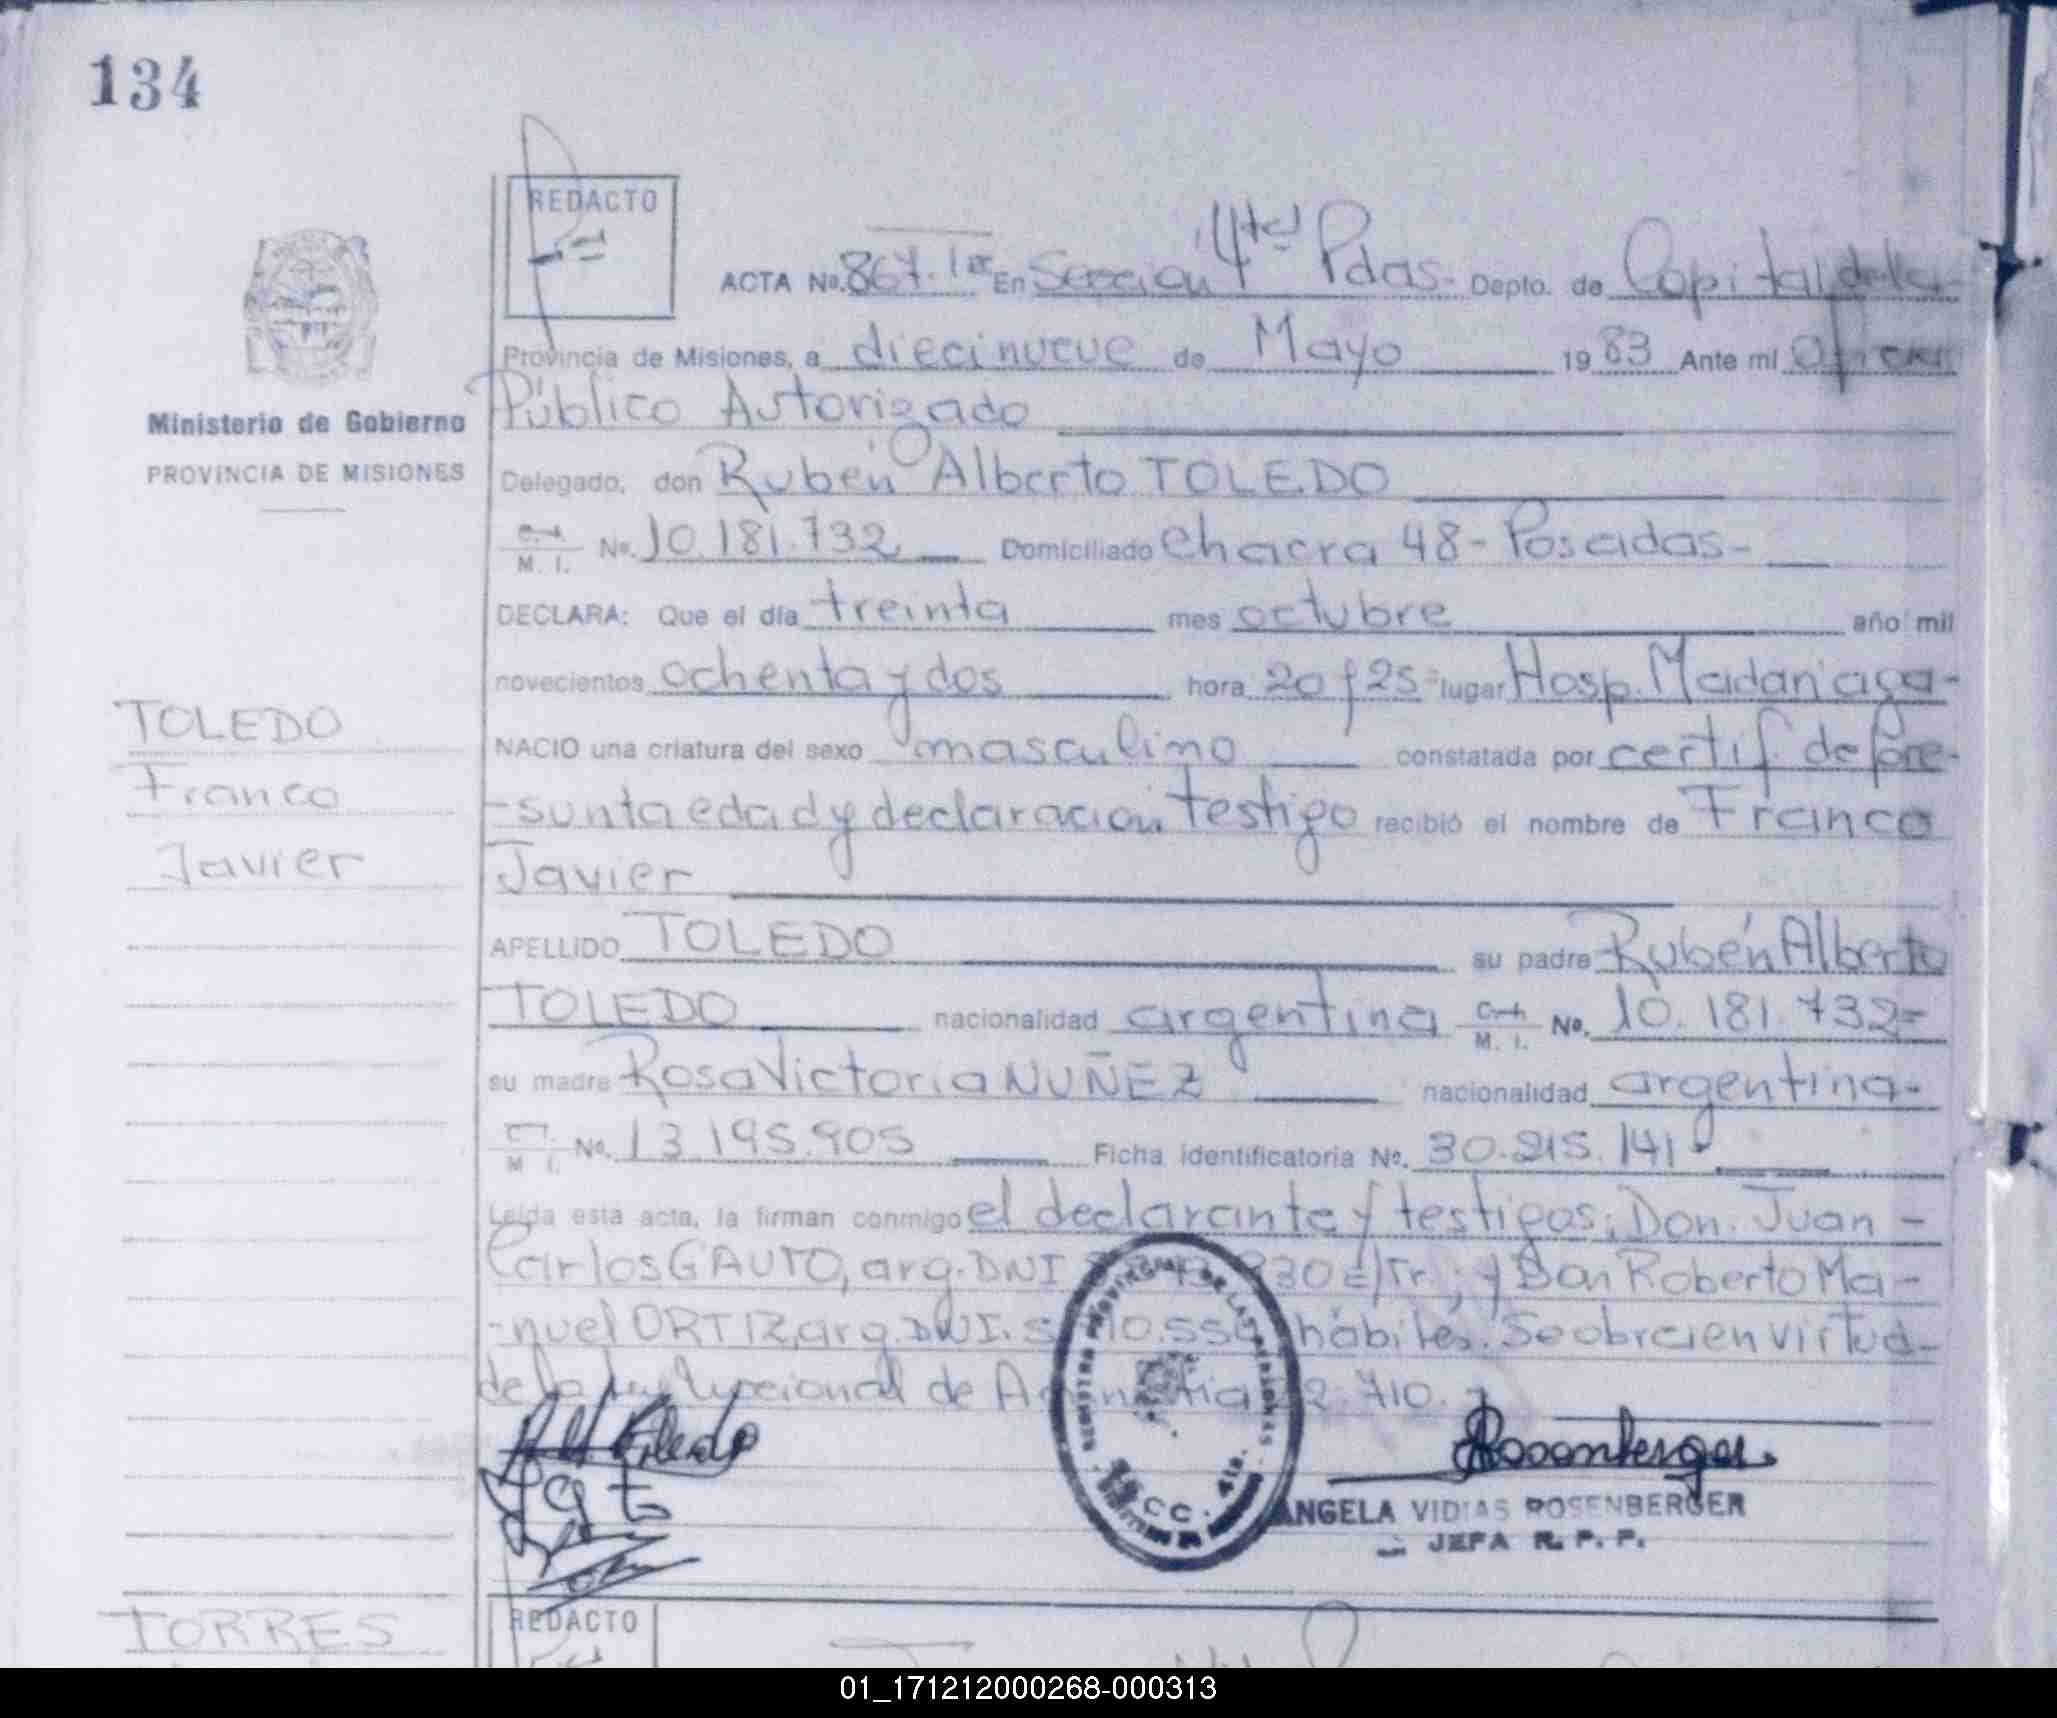 134
REDACTO
ACTA No. 867. 1er En Sección 4ta Pdas- Depto. de Capital de la
Provincia de Misiones, a diecinueve de Mayo 1983 Ante mí Oficial
Ministerio de Gobierno
PROVINCIA DE MISIONES
Público Autorizado
Delegado, don Rubén Alberto TOLEDO
M. I. No. 10.181.732 Domiciliado Chacra 48 - Posadas-
DECLARA: Que el día treinta mes octubre año mil
novecientos ochenta y dos hora 20 y 25 lugar Hosp. Madariaga-
NACIO una criatura del sexo masculino constatada por certif. de pre-
-sunta edad y declaración testigo recibió el nombre de Franco
Javier
TOLEDO
Franco
Javier
APELLIDO TOLEDO su padre Rubén Alberto
TOLEDO nacionalidad argentina M. I. No. 10.181.732=
su madre Rosa Victoria NUÑEZ nacionalidad argentina-
M. I. No. 13.195.905 Ficha identificatoria No. 30.215.141-
Leída esta acta, la firman conmigo el declarante y testigos; Don. Juan -
Carlos GAUTO, arg. DNI 330 c/Tr.; y Don Roberto Ma-
-nuel ORTIZ, arg. DNI. hábiles. Se obra en virtud-
de la Ley de Argentina 22.710.
REGISTRO PROVINCIAL DE LAS PERSONAS
SECC. 4ta.
Toledo
Rosenberger
ANGELA VIDIAS ROSENBERGER
JEFA R. P. P.
TORRES
REDACTO
01_171212000268-000313